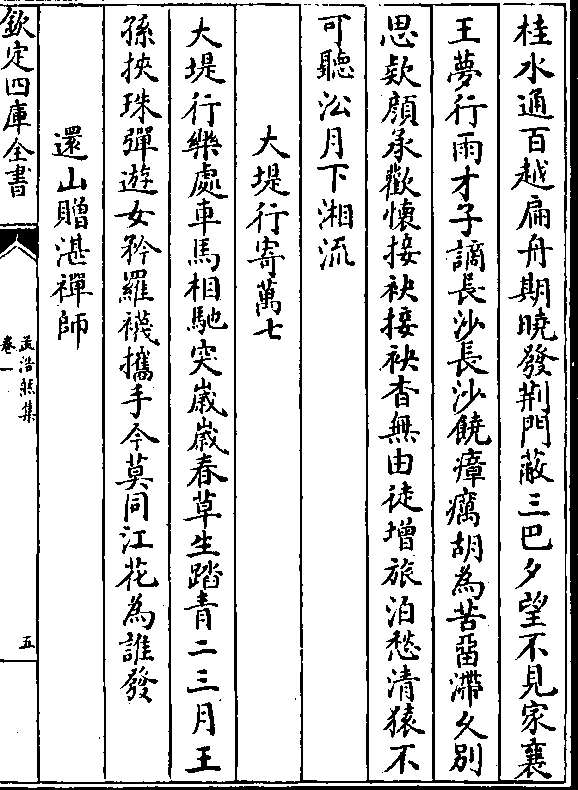 桂水通百越扁舟期曉發荆門蔽三巴夕望不見家襄
王夢行雨才子謫長沙長沙饒瘴癘胡為苦留滯久别
思欵顔承歡懷接袂接袂杳無由徒增旅泊愁清猿不
可聽㳂月下湘流
大堤行寄萬七
大堤行樂處車馬相馳突嵗嵗春草生踏青二三月王
孫挾珠彈遊女矜羅襪攜手今莫同江花為誰發
還山贈湛禪師
欽定四庫全書
孟浩然集
卷一
五